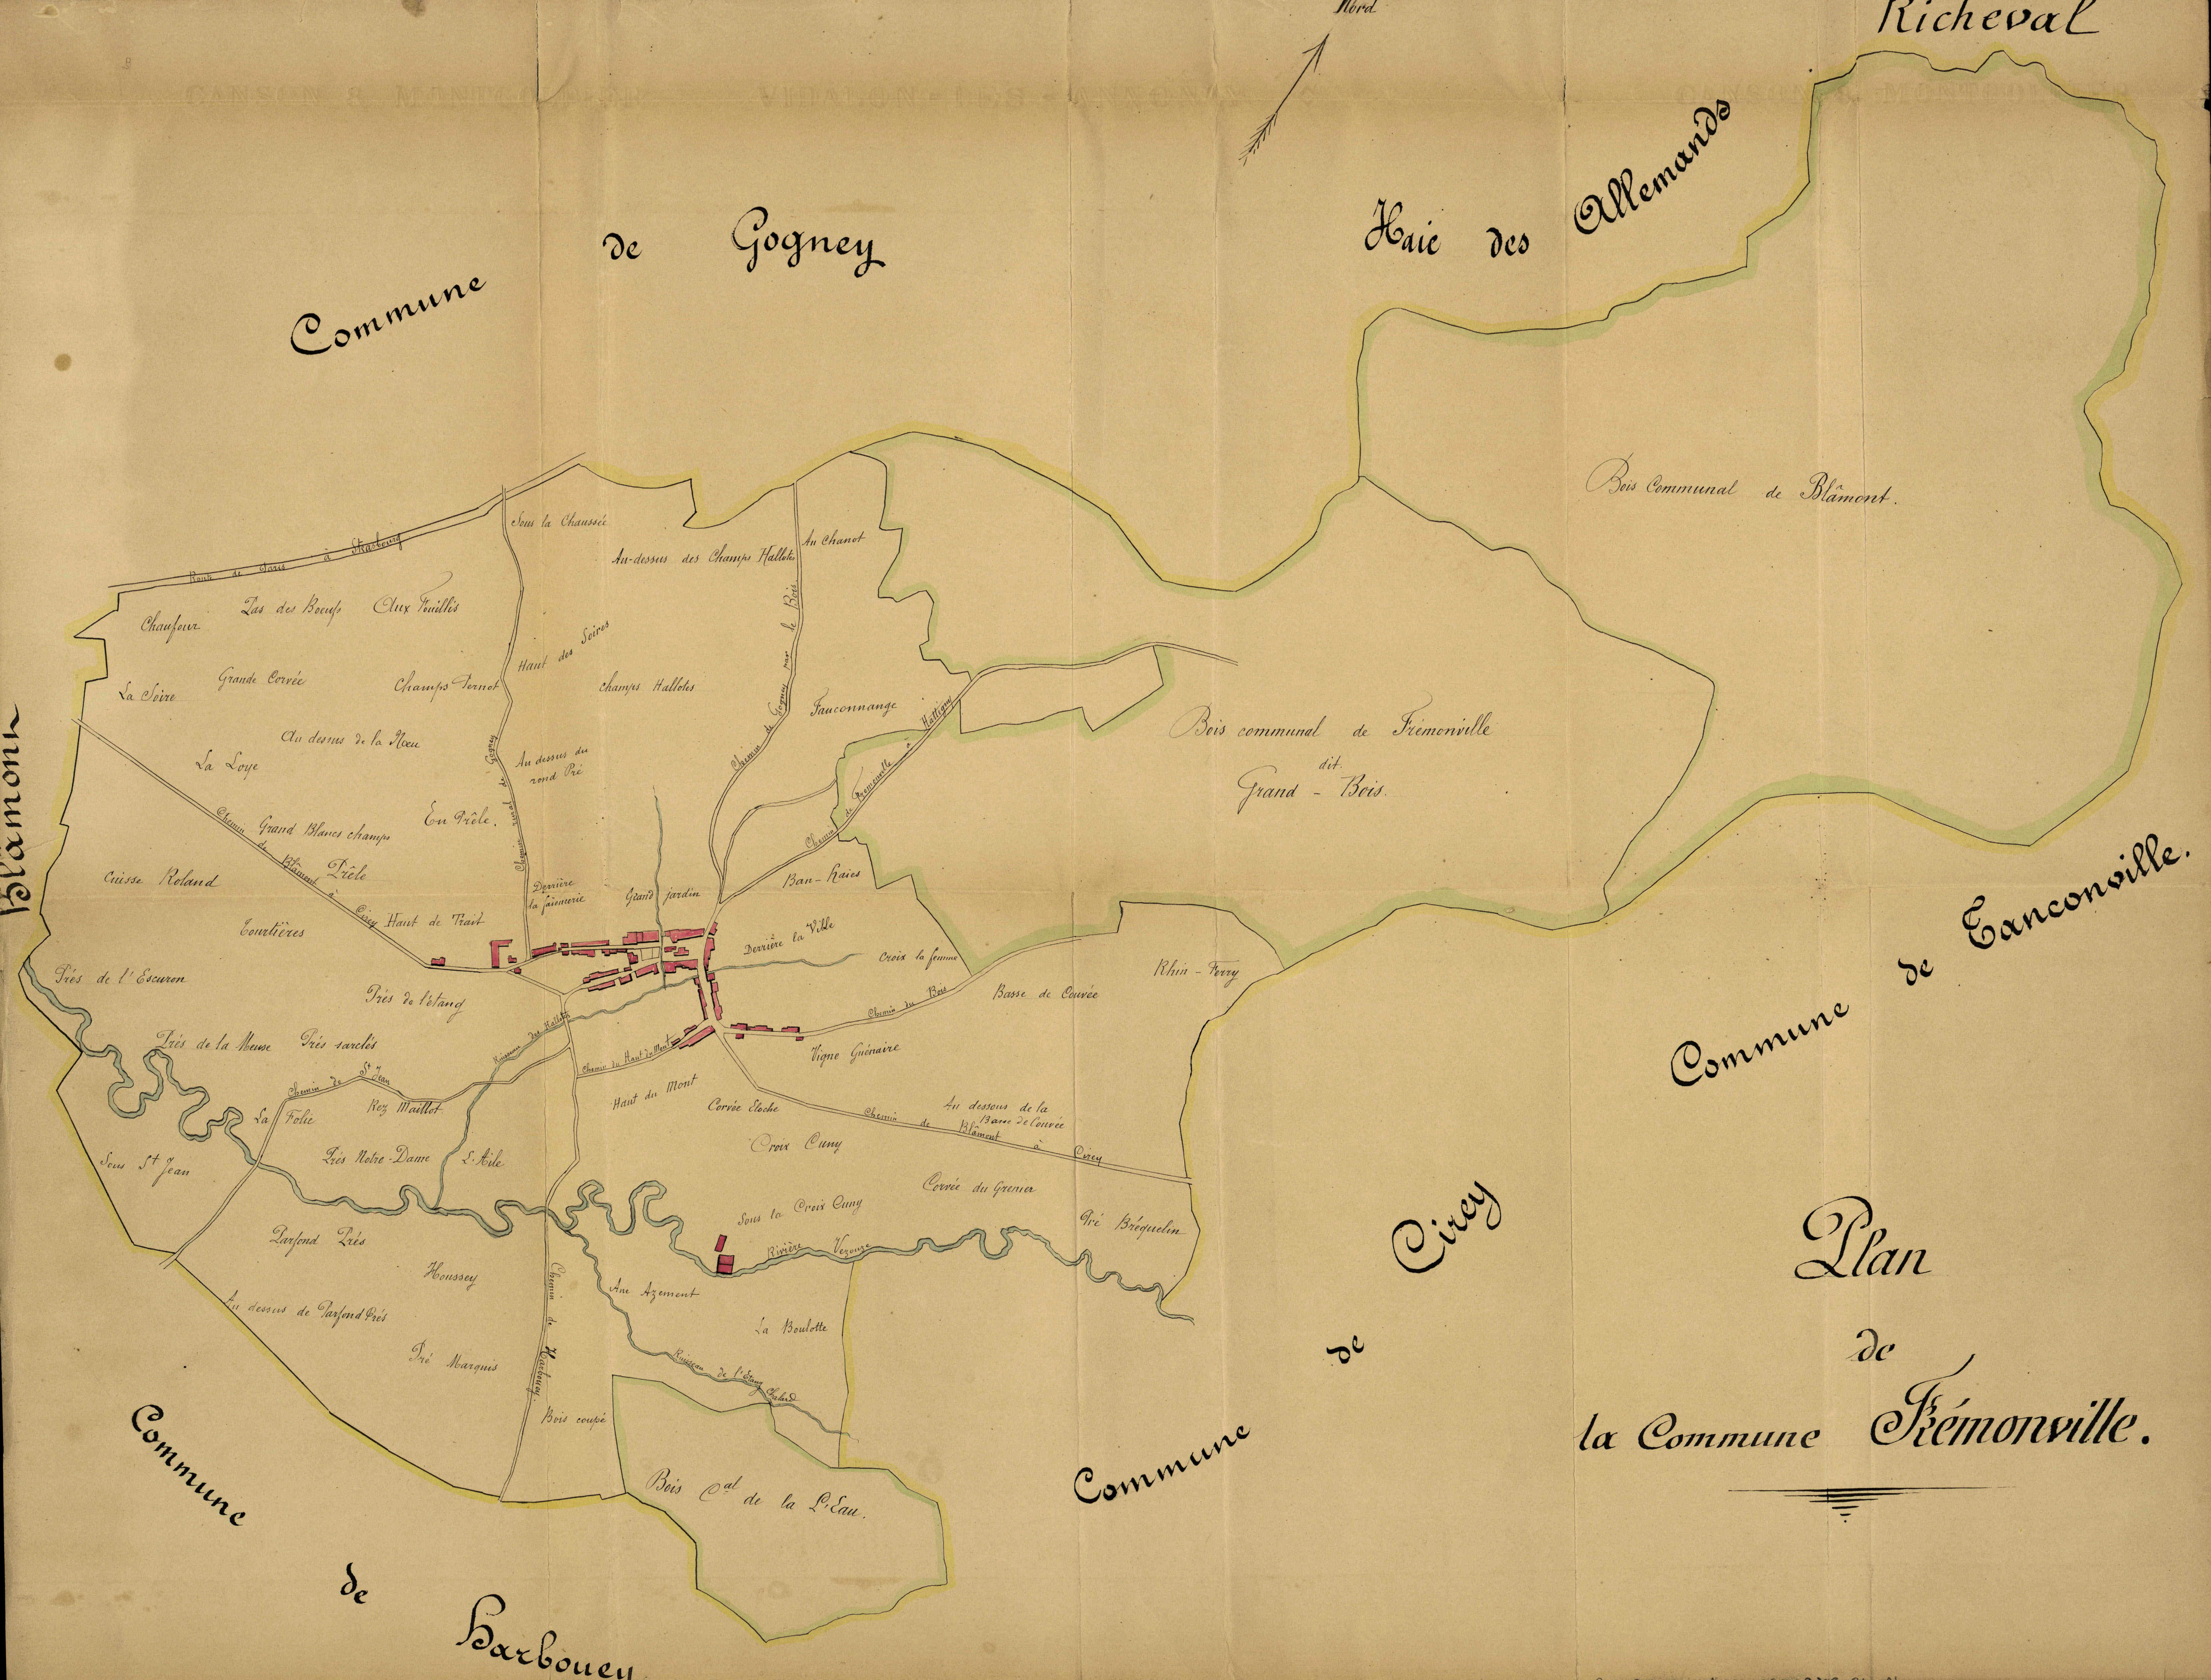 Nord
Richeval
Haie des Allemands
Commune de Gogney
Blâmont
Bois Communal de Blâmont.
Sous la Chaussée
Au-dessus des Champs Hallotes
Au Chanot
Route de Paris à Strasbourg
Pas des Boeufs
Aux Feuillés
Chaufour
Haut des Soires
Grande Corvée
Champs Pernot
La Soire
champs Hallotes
Fauconnange
Chemin de Gogney par le Bois
Chemin de Fremonville à Hattigny
Au dessus de la Noeu
La Loye
Chemin rural de Gogney
Au dessus du
rond Pré
Bois communal de Frémonville
dit
Grand - Bois.
En Prêle.
Grand Blancs champs
Chemin de Blâmont à Cirey
Prêle
Cuisse Roland
Derrière
la faiencerie
Grand jardin
Ban-haies
Haut de Trait
Tourtières
Derrière la Ville
Croix la femme
Prés de l'Escuron
Prés de l'étang
Chemin du Bois
Basse de Couvée
Rhin-Ferry
Ruisseau des Hallotes
Prés de la Meuse
Prés sarclés
Chemin du Haut du Mont
Vigne Guénaire
Chemin de St Jean
Roz Maillot
La Folie
Haut du Mont
Corvée Cloche
Au dessous de la
Basse de Couvée
Chemin de Blâmont à Cirey
Croix Cuny
Sous St Jean
Prés Notre-Dame
L'Aile
Corvée du Grenier
Sous la Croix Cuny
Pré Bréquelin
Rivière Vezouze
Parfond Prés
Houssey
Au dessus de Parfond Prés
Chemin de Harbouey
Azement
La Boulotte
Pré Marquis
Ruisseau de l'Etang
Bois coupé
Bois Cal de la L'Eau.
Commune de Tanconville.
Commune de Cirey
Commune de Harbouey
Plan
de
la Commune Frémonville.